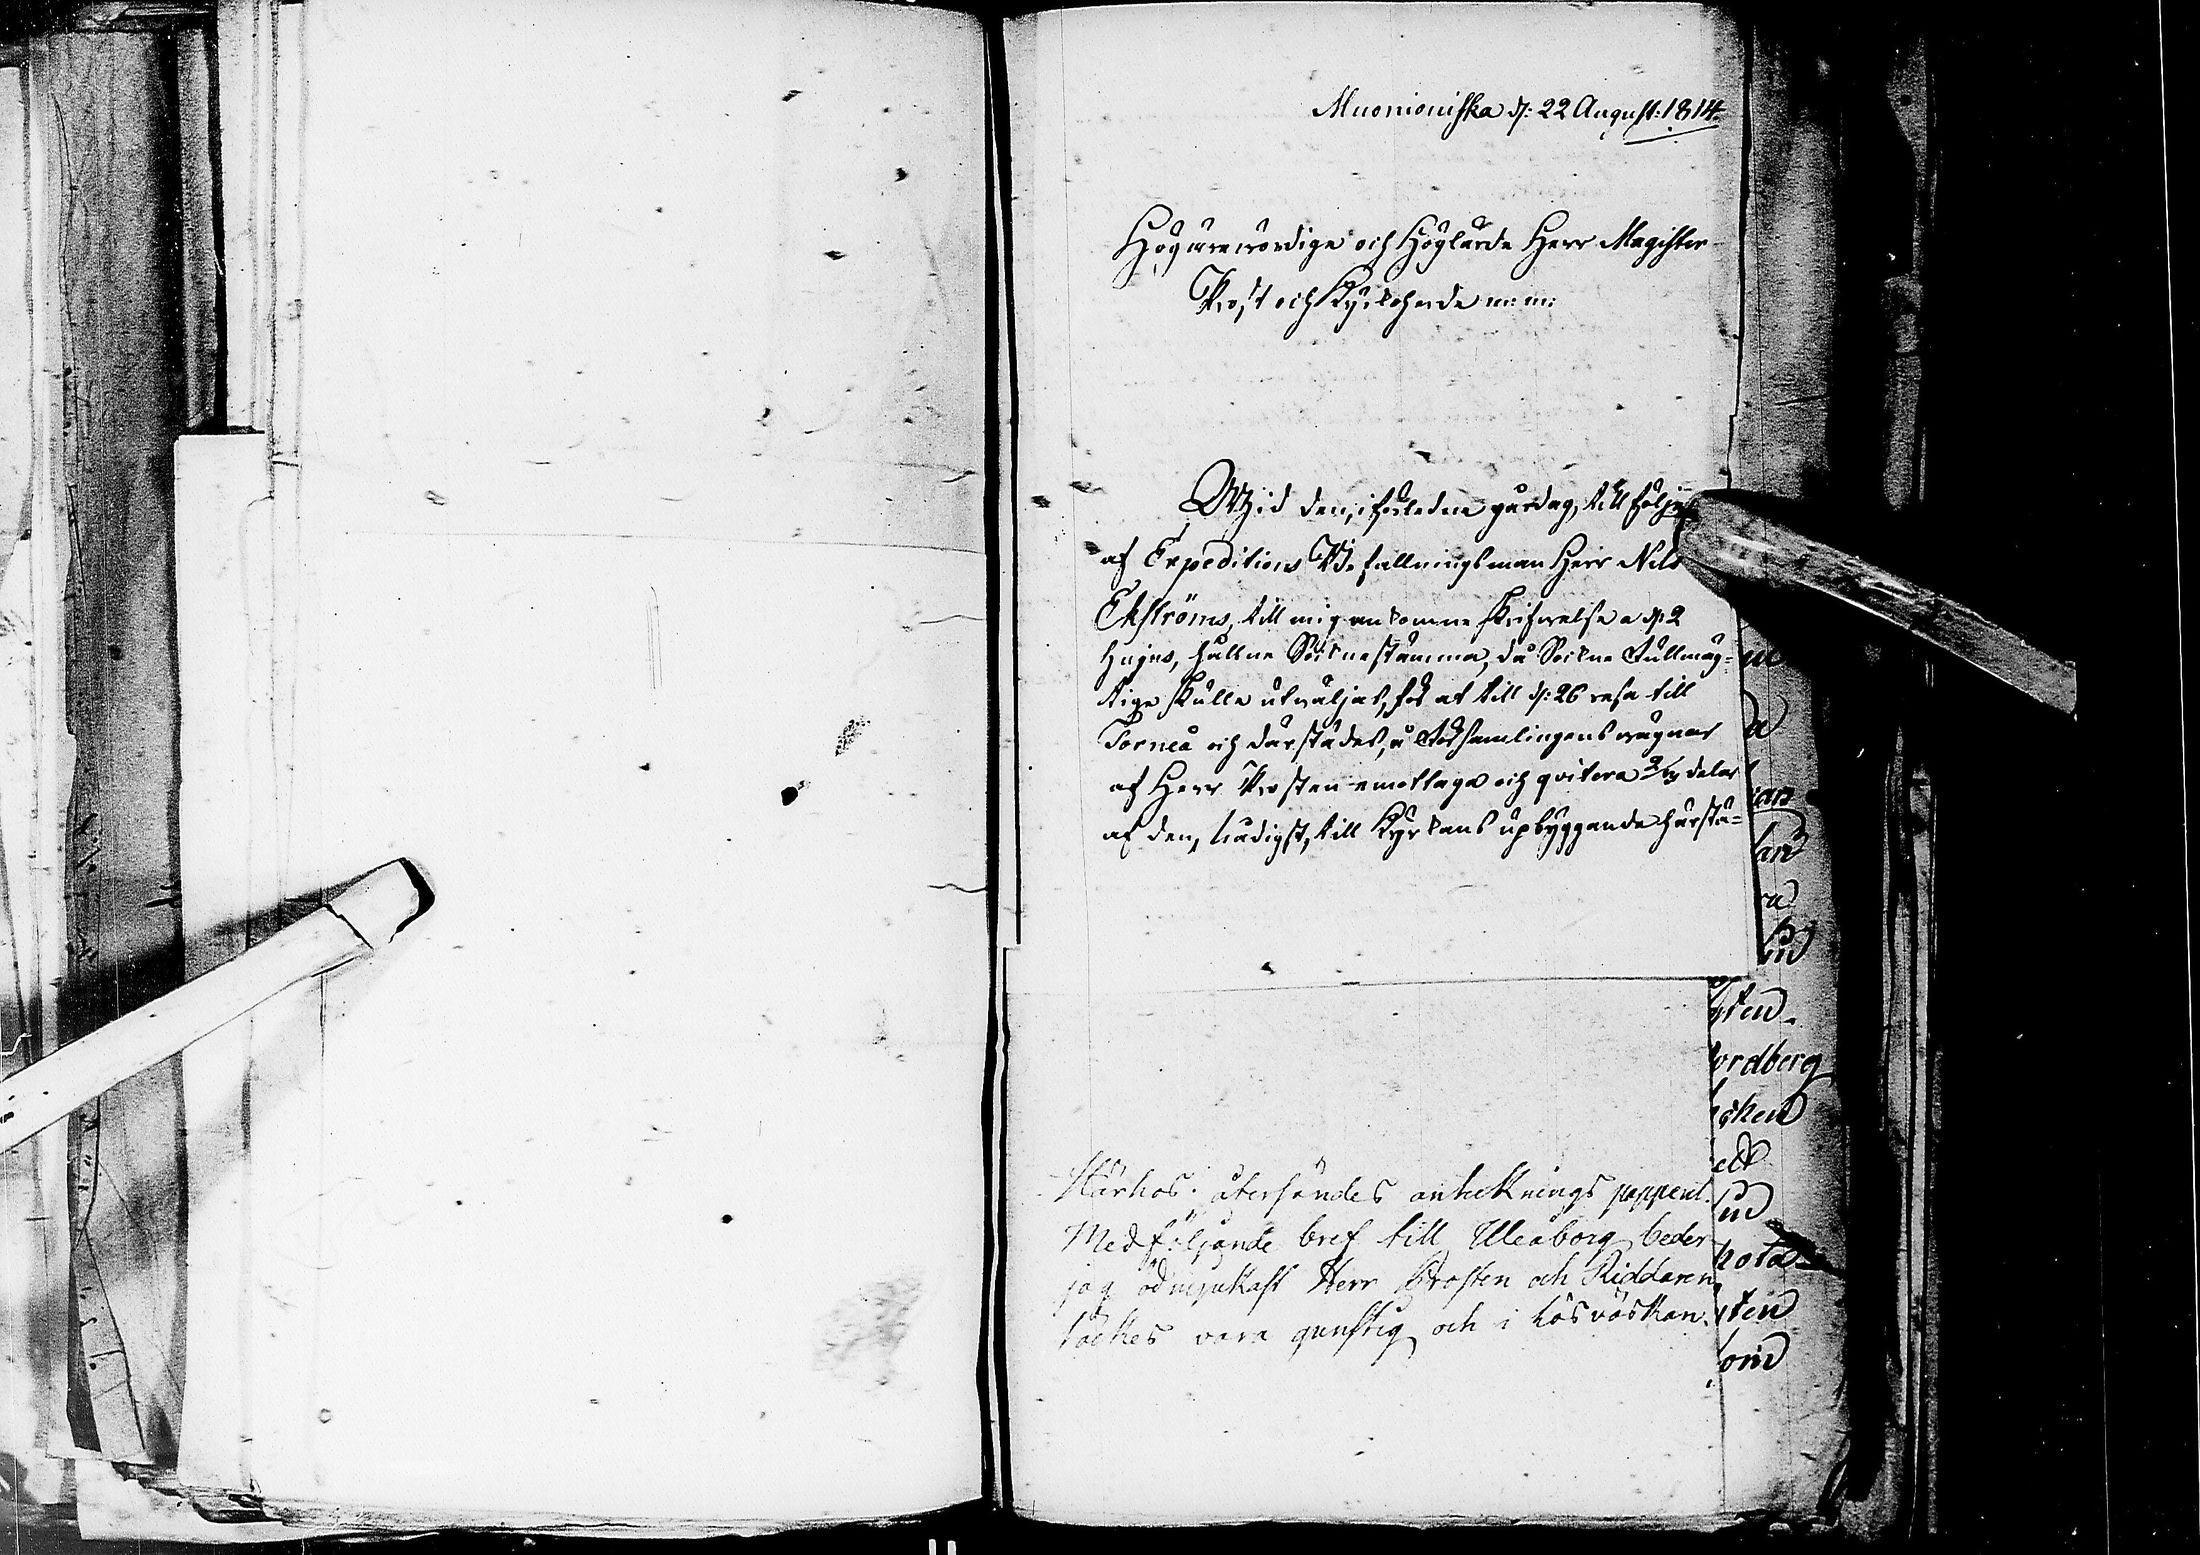 Muonioniska d: 22 August: 1814.
Högärewördige och Höglärde Herr Magister
Prost och Kyrkoherde m: m:
Wid den, i förledne gårdag, till följe
af Expeditions Befallningsman Herr Nils
Ekströms, till mig ankomne skrifwelse a d: 2
Hujus, hållne Socknestämma, då Sockne Fullmäg-
tige skulle utwäljas, för at till d: 26 resa till
Torneå och därstädes, å Församlingens wägnar
af Herr Prosten emottaga och qvitera delar
af den, Nådigst, till Kyrkans upbyggande härstä-
Härhos återsändes anteknings papperet.
Medföljande bref till Uleåborg beder
jag ödmjukast Herr Prosten och Riddaren
täckes vara gunstig och i lösväskan
ordberg